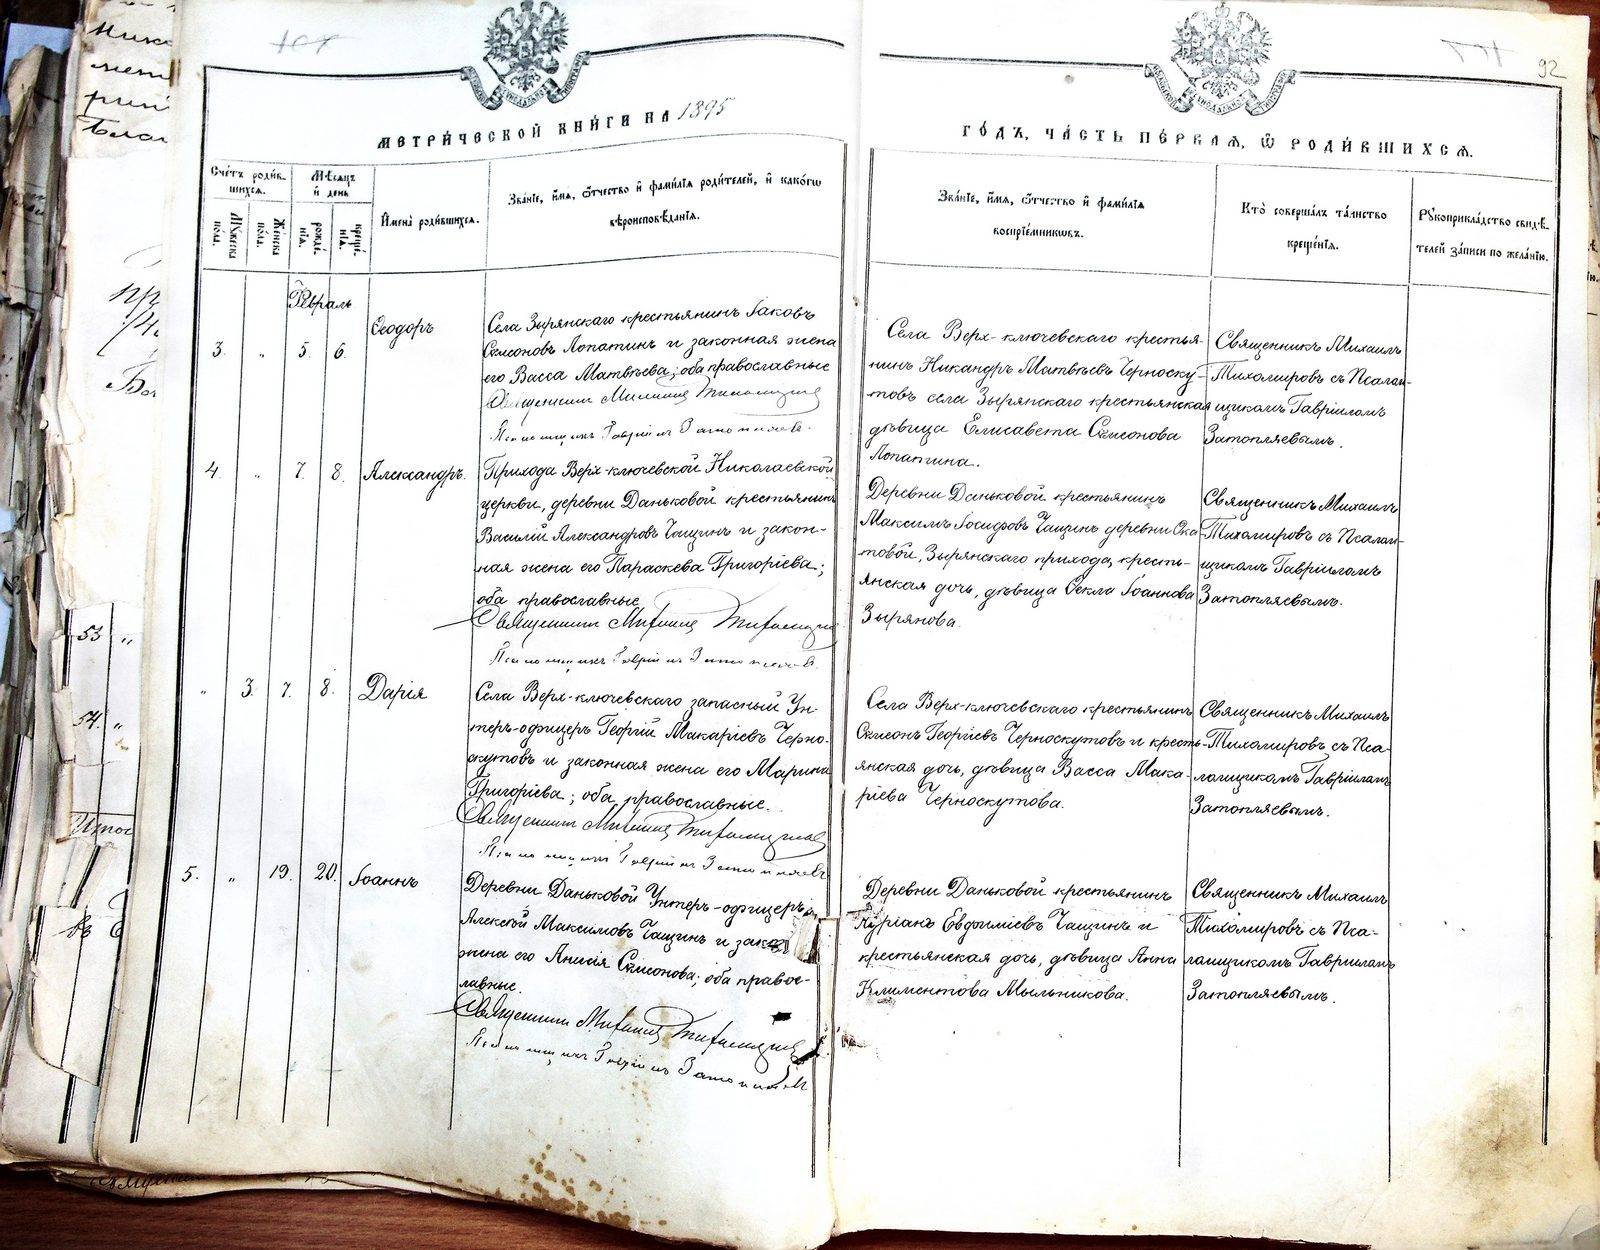 92
МЕТРИ́ЧЕСКОЙ КНИ́ГИ НА 1895
ГО́ДЪ, ЧА́СТЬ ПЕ́РВАЯ, Ѽ РОДИ́ВШИХСЯ.
Сче́тъ роди́в-
шихся.
Мѣ́сяцъ
и҆ де́нь
Му́жеска
по́ла.
Же́нска
по́ла.
рожде́-
нїя.
креще́-
нїя.
И҆мена̀ роди́вшихся.
Зва́нїе, и҆́мя, ѻ҆́тчество и҆ фами́лїя роди́телей, и҆ како́гѡ
вѣроисповѣ́данїя.
Зва́нїе, и҆́мя, ѻ҆́тчество и҆ фами́лїя
воспрїе́мникѡвъ.
Кто̀ соверша́лъ та́инство
креще́нїя.
Рꙋкоприкла́дство свидѣ́-
телей за́писи по жела́нїю.
Февраль
3. „ 5. 6.
Ѳеодоръ
Села Зырянскаго крестьянинъ Іаковъ
Симеоновъ Лопатинъ и законная жена
его Васса Матвѣева; оба православные
Священникъ Михаилъ Тихомировъ
Псаломщикъ Гавріилъ Затопляевъ.
Села Верх-ключевскаго крестья-
нинъ Никандръ Матвѣевъ Черноску-
товъ села Зырянскаго крестьянская
дѣвица Елисавета Симеонова
Лопатина.
Священникъ Михаилъ
Тихомировъ съ Псалом-
щикомъ Гавріиломъ
Затопляевымъ.
4. „ 7. 8.
Александръ.
Прихода Верх-ключевской Николаевской
церкви, деревни Даньковой крестьянинъ
Василій Александровъ Чащинъ и закон-
ная жена его Параскева Григоріева;
оба православные
Священникъ Михаилъ Тихомировъ
Псаломщикъ Гавріилъ Затопляевъ.
Деревни Даньковой крестьянинъ
Максимъ Іосифовъ Чащинъ деревни Ска
товой, Зырянскаго прихода, кресть-
янская дочь, дѣвица Ѳекла Іоаннова
Зырянова.
Священникъ Михаилъ
Тихомировъ съ Псалом-
щикомъ Гавріиломъ
Затопляевымъ.
„ 3. 7. 8.
Дарія
Села Верх-ключевскаго запасный Ун-
теръ-офицеръ Георгій Макаріевъ Черно-
скутовъ и законная жена его Марина
Григоріева; оба православные.
Священникъ Михаилъ Тихомировъ
Псаломщикъ Гавріилъ Затопляевъ
Села Верх-ключевскаго крестьянинъ
Симеонъ Георгіевъ Черноскутовъ и кресть-
янская дочь, дѣвица Васса Мака-
ріева Черноскутова.
Священникъ Михаилъ
Тихомировъ съ Пса-
ломщикомъ Гавріиломъ
Затопляевымъ.
5. „ 19. 20.
Іоаннъ
Деревни Даньковой Унтеръ-офицеръ
Алексѣй Максимовъ Чащинъ и зак
жена его Анисія Симеонова; оба правос-
лавные.
Священникъ Михаилъ Тихомировъ
Псаломщикъ Гавріилъ Затопляевъ
Деревни Даньковой крестьянинъ
Куріанъ Евдокимовъ Чащинъ и
крестьянская дочь, дѣвица Анна
Климентова Мыльникова.
Священникъ Михаилъ
Тихомировъ съ Пса-
ломщикомъ Гавріиломъ
Затопляевымъ.
53 „
54. „
Итого